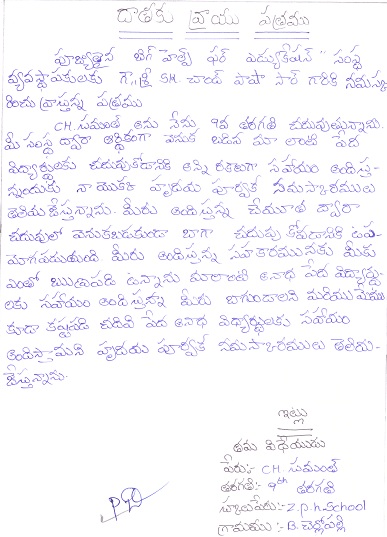 దాతకు వ్రాయు పత్రము
పూజ్యులైన బిగ్ హెల్ప్ ఫర్ ఎడ్యుకేషన్" సంస్థ
వ్యవస్థాపకులకు గౌ॥శ్రీ SM. చాంద్ పాషా సార్ గారికి నమస్క
రించు వ్రాస్తున్న పత్రము
CH. సుమంత్ అను నేను 9వ తరగతి చదువుతున్నాను.
మీ సంస్థ ద్వారా ఆర్థికంగా వెనుక బడిన మా లాంటి పేద
విద్యార్థులకు చదువుకోడానికి అన్ని రకాలుగా సహాయం అందిస్తు-
న్నందుకు నా యొక్క హృదయ పూర్వక నమస్కారములు
తెలియజేస్తున్నాను. మీరు అందిస్తున్న చేయూత ద్వారా
చదువులో వెనుకబడకుండా బాగా చదువు కోవడానికి ఉప-
యోగపడుతుంది మీరు అందిస్తున్న సహకారమునకు మీకు
ఎంతో ఋణపడి ఉన్నాను మాలాంటి అనాధ పేద విద్యార్థు-
లకు సహాయం అందిస్తున్న మీరు బాగుండాలని మరియు మేము
కూడా కష్టపడి చదివి పేద అనాధ విద్యార్థులకు సహాయం
అందిస్తామని హృదయ పూర్వక నమస్కారములు తెలియ-
జేస్తున్నాను.
ఇట్లు
తమ విధేయుడు
పేరు:- CH. సుమంత్
తరగతి:- 9th తరగతి
స్కూలుపేరు:- Z.p.h.School
గ్రామము :- B.చెర్లోపల్లి